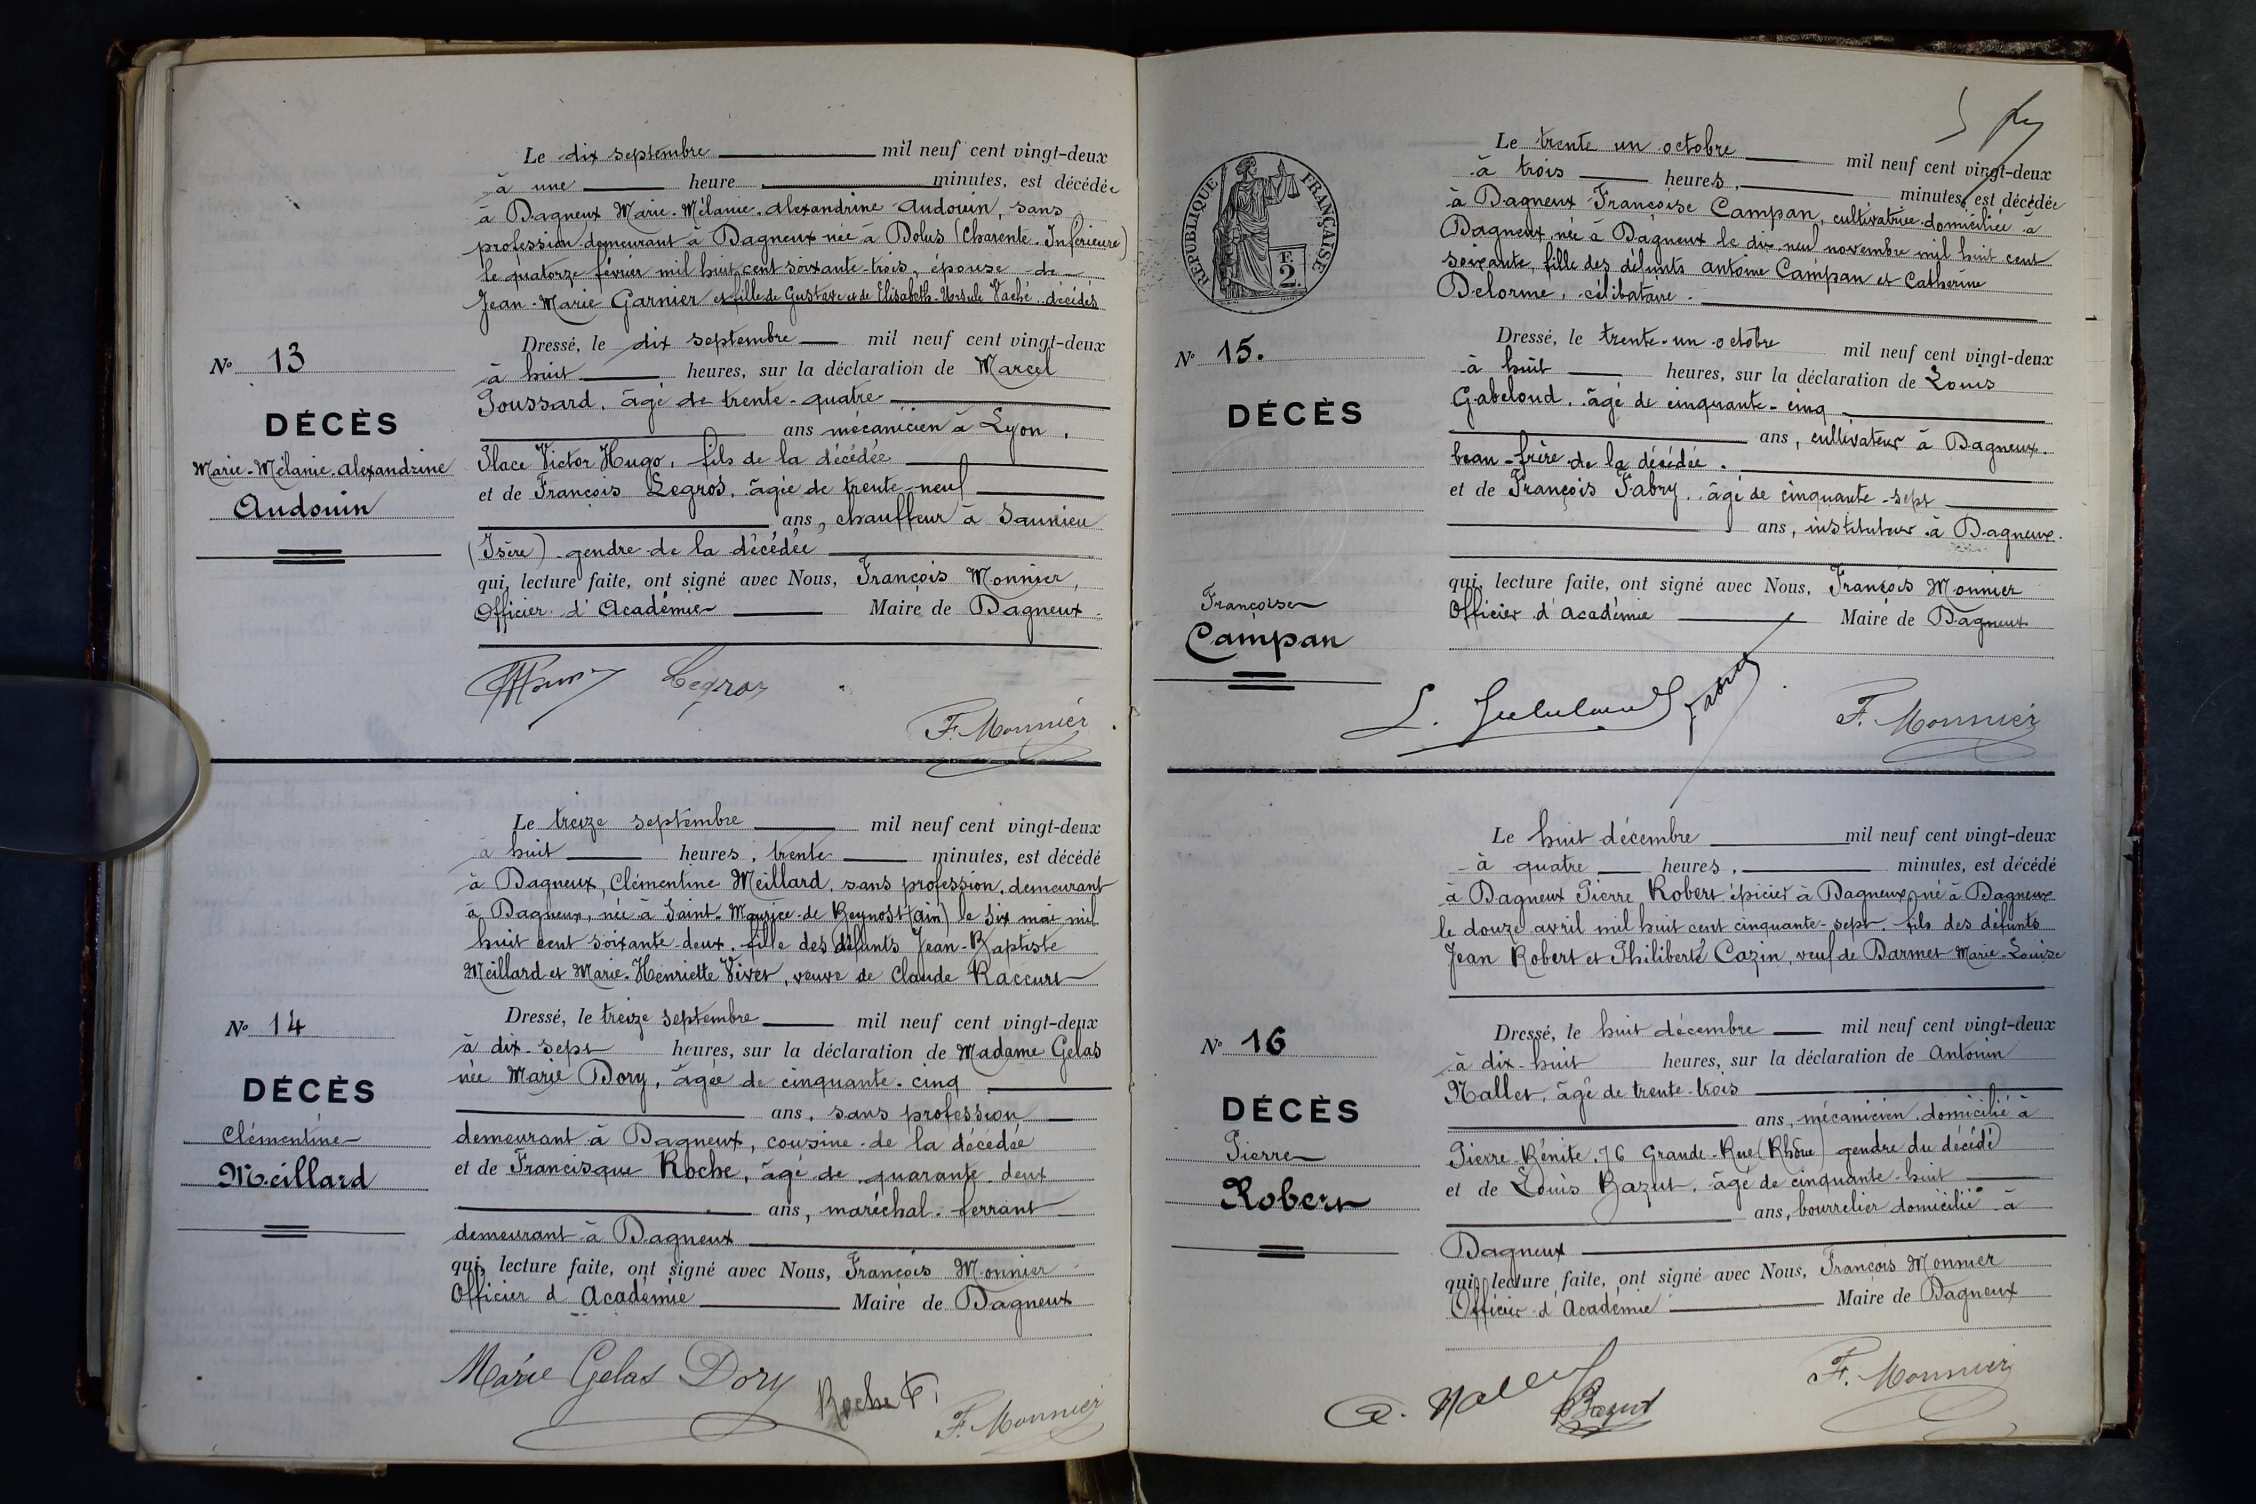 Le dix septembre mil neuf cent vingt-deux
à une heure minutes, est décédée
à Dagneux Marie-Mélanie-Alexandrine Audouin, sans
profession demeurant à Dagneux née à Dolus (Charente-Inférieure)
le quatorze février mil huit cent soixante-trois, épouse de
Jean-Marie Garnier et fille de Gustave et de Elisabeth-Ursule Vaché, décédés
Nº 13
DÉCÈS
Marie-Mélanie-Alexandrine
Audouin
Dressé, le dix septembre mil neuf cent vingt-deux
à huit heures, sur la déclaration de Marcel
Poussard, âgé de trente-quatre
ans mécanicien à Lyon,
Place Victor Hugo, fils de la décédée
et de François Legros, âgée de trente-neuf
ans, chauffeur à Saunieu
(Isère) gendre de la décédée
qui, lecture faite, ont signé avec Nous, François Monnier,
Officier d'Académie Maire de Dagneux
Legros
F. Monnier
Le treize septembre mil neuf cent vingt-deux
à huit heures, trente minutes, est décédé
à Dagneux, Clémentine Meillard, sans profession, demeurant
à Dagneux, née à Saint-Maurice-de Beynost (Ain) le six mai mil
huit cent soixante-deux, fille des défunts Jean-Baptiste
Meillard et Marie-Henriette Vivet, veuve de Claude Raccurt
Nº 14
DÉCÈS
Clémentine
Meillard
Dressé, le treize septembre mil neuf cent vingt-deux
à dix-sept heures, sur la déclaration de Madame Gelas
née Marie Dory, âgée de cinquante-cinq
ans, sans profession
demeurant à Dagneux, cousine de la décédée
et de Francisque Roche, âgé de quarante-deux
ans, maréchal-ferrant
demeurant à Dagneux
qui, lecture faite, ont signé avec Nous, François Monnier
Officier d'Académie Maire de Dagneux
Marie Gelas Dory
Roche F.
F. Monnier
RÉPUBLIQUE FRANÇAISE
F.
2.
Le trente un octobre mil neuf cent vingt-deux
à trois heures, minutes, est décédée
à Dagneux Françoise Campan, cultivatrice domiciliée à
Dagneux, née à Dagneux le dix-neuf novembre mil huit cent
soixante, fille des défunts Antoine Campan et Catherine
Delorme, célibataire.
Nº 15.
DÉCÈS
Françoise
Campan
Dressé, le trente-un octobre mil neuf cent vingt-deux
à huit heures, sur la déclaration de Louis
Gabeloud, âgé de cinquante-cinq
ans, cultivateur à Dagneux.
beau-frère de la décédée.
et de François Fabry, âgé de cinquante-sept
ans, instituteur à Dagneux.
qui, lecture faite, ont signé avec Nous, François Monnier
Officier d'Académie Maire de Dagneux
L. Gabeloud
Fabry
F. Monnier
Le huit décembre mil neuf cent vingt-deux
à quatre heures, minutes, est décédé
à Dagneux Pierre Robert épicier à Dagneux, né à Dagneux
le douze avril mil huit cent cinquante-sept, fils des défunts
Jean Robert et Philiberte Cazin, veuf de Darmet Marie-Louise
Nº 16
DÉCÈS
Pierre
Robert
Dressé, le huit décembre mil neuf cent vingt-deux
à dix-huit heures, sur la déclaration de Antonin
Mallet, âgé de trente-trois
ans, mécanicien domicilié à
Pierre-Bénite, 76 Grande-Rue (Rhône) gendre du décédé
et de Louis Bazut, âgé de cinquante-huit
ans, bourrelier domicilié à
Dagneux
qui, lecture faite, ont signé avec Nous, François Monnier
Officier d'Académie Maire de Dagneux
a. Mallet
Bazut
F. Monnier